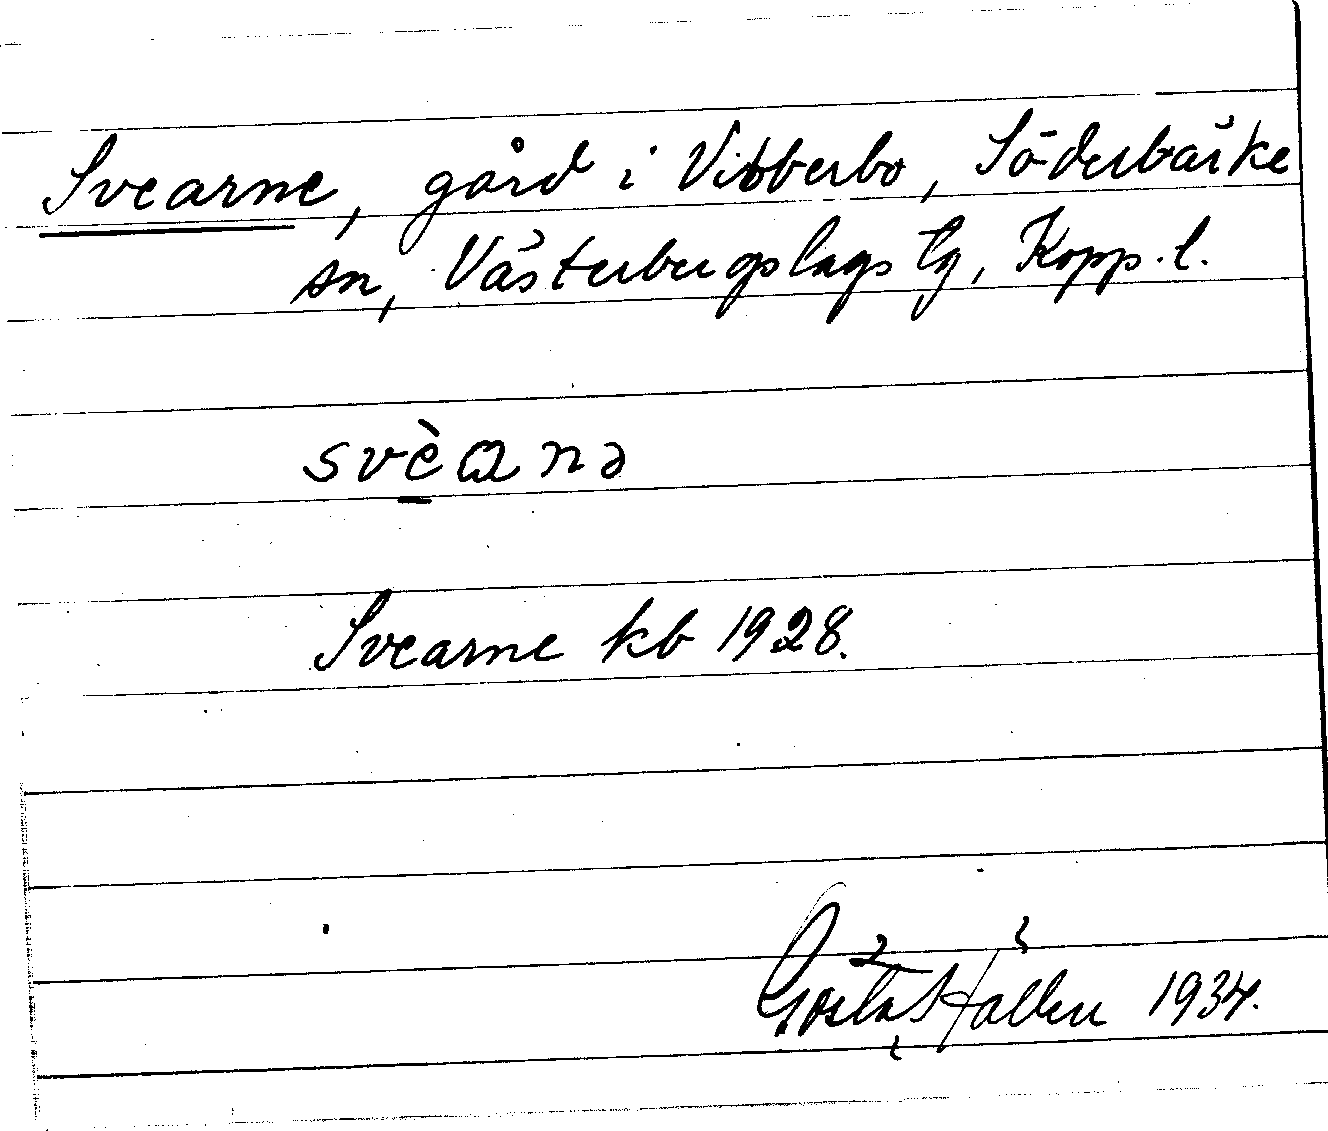 Svearne, gård i Vibberbo, Söderbärke
sn, Västerbergslags tg, Kopp. l.
svèana
Svearne kb 1928.
Gösta Hallen 1934.